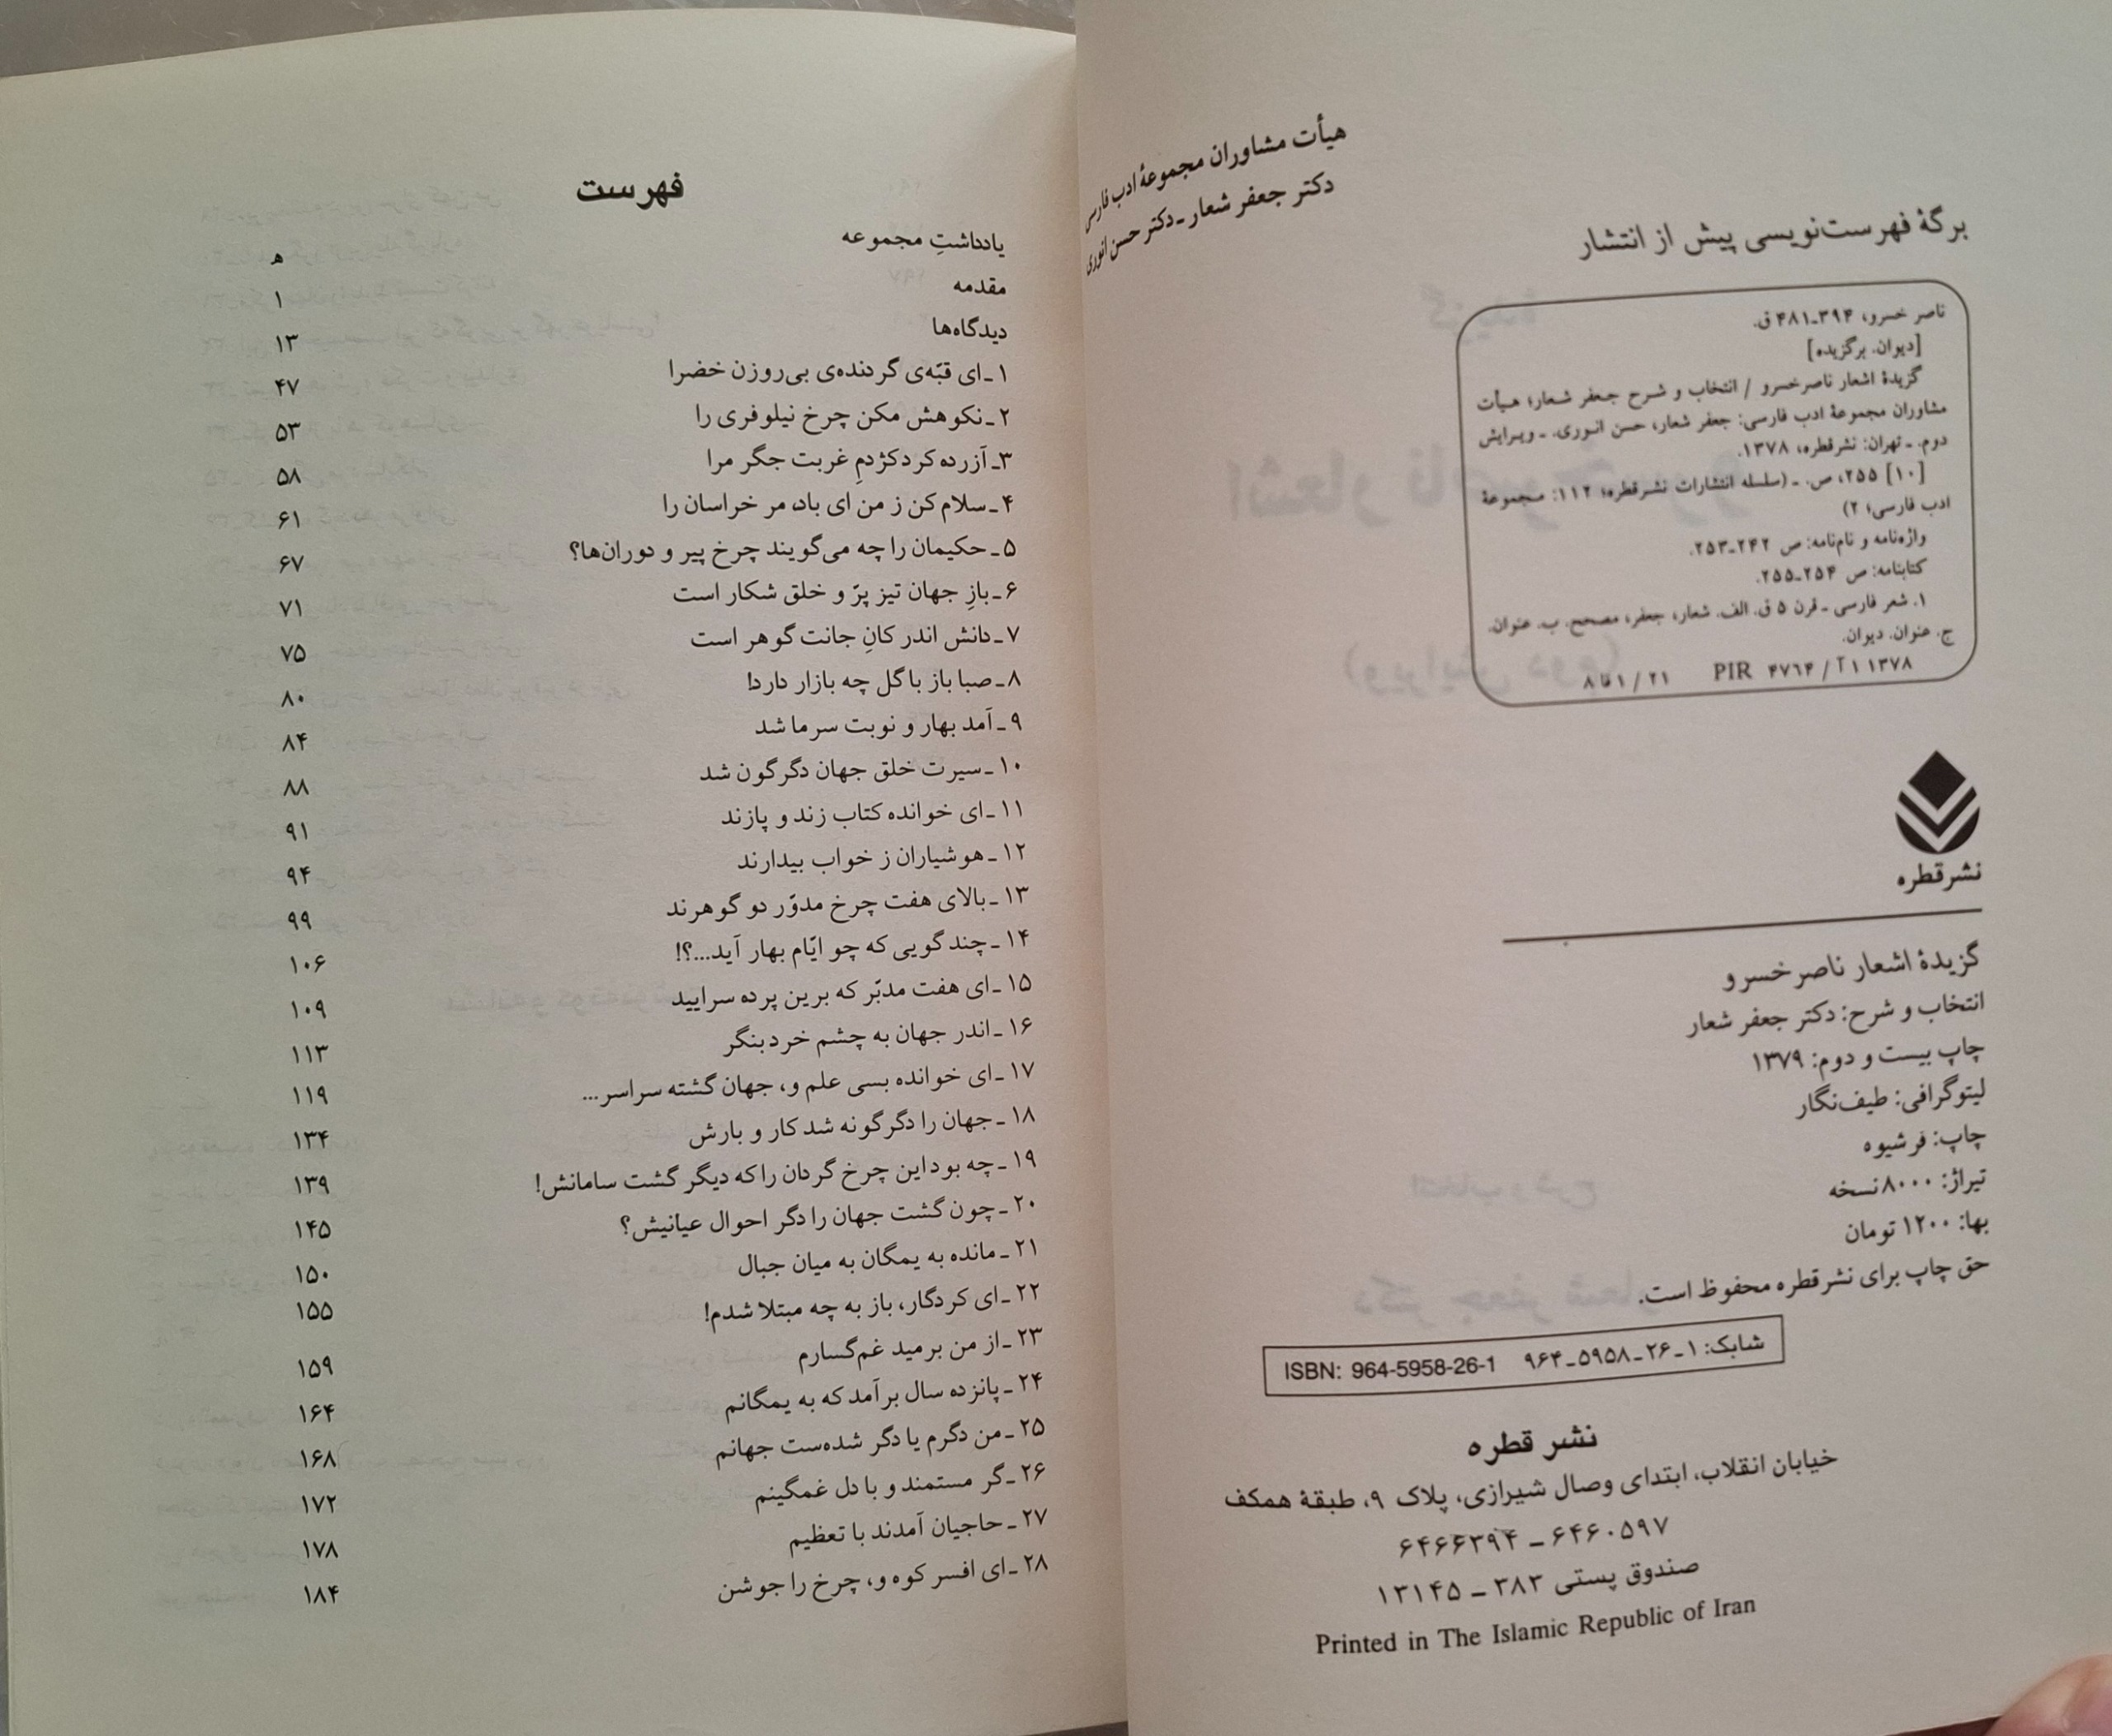 هیأت مشاوران مجموعهٔ ادب فارسی
دکتر جعفر شعار ـ دکتر حسن انوری
برگهٔ فهرست‌نویسی پیش از انتشار
ناصر خسرو، ۳۹۴ـ۴۸۱ ق.
[دیوان. برگزیده]
گزیدهٔ اشعار ناصرخسرو / انتخاب و شرح جعفر شعار؛ هیأت
مشاوران مجموعهٔ ادب فارسی: جعفر شعار، حسن انوری. ـ ویرایش
دوم. ـ تهران: نشرقطره، ۱۳۷۸.
[۱۰] ۲۵۵، ص. ـ (سلسله انتشارات نشرقطره؛ ۱۱۲: مجموعهٔ
ادب فارسی؛ ۲)
واژه‌نامه و نام‌نامه: ص ۲۴۲ـ۲۵۳.
کتابنامه: ص ۲۵۴ـ۲۵۵.
۱. شعر فارسی ـ قرن ۵ ق. الف. شعار، جعفر، مصحح. ب. عنوان.
ج. عنوان. دیوان.
۸فا۱ / ۲۱ PIR ۴۷۶۴ / آ۱ ۱۳۷۸
نشرقطره
گزیدهٔ اشعار ناصرخسرو
انتخاب و شرح: دکتر جعفر شعار
چاپ بیست و دوم: ۱۳۷۹
لیتوگرافی: طیف‌نگار
چاپ: فرشیوه
تیراژ: ۸۰۰۰ نسخه
بها: ۱۲۰۰ تومان
حق چاپ برای نشرقطره محفوظ است.
شابک: ۱ـ۲۶ـ۵۹۵۸ـ۹۶۴ ISBN: 964-5958-26-1
نشر قطره
خیابان انقلاب، ابتدای وصال شیرازی، پلاک ۹، طبقهٔ همکف
۶۴۶۰۵۹۷ ـ ۶۴۶۶۳۹۴
صندوق پستی ۳۸۳ ـ ۱۳۱۴۵
Printed in The Islamic Republic of Iran
فهرست
یادداشتِ مجموعه ه
مقدمه ۱
دیدگاه‌ها ۱۳
۱ـ ای قبّه‌ی گردنده‌ی بی‌روزن خضرا ۴۷
۲ـ نکوهش مکن چرخ نیلوفری را ۵۳
۳ـ آزرده کرد کژدمِ غربت جگر مرا ۵۸
۴ـ سلام کن ز من ای باد، مر خراسان را ۶۱
۵ـ حکیمان را چه می‌گویند چرخ پیر و دوران‌ها؟ ۶۷
۶ـ بازِ جهان تیز پرّ و خلق شکار است ۷۱
۷ـ دانش اندر کانِ جانت گوهر است ۷۵
۸ـ صبا باز با گل چه بازار دارد! ۸۰
۹ـ آمد بهار و نوبت سرما شد ۸۴
۱۰ـ سیرت خلق جهان دگرگون شد ۸۸
۱۱ـ ای خوانده کتاب زند و پازند ۹۱
۱۲ـ هوشیاران ز خواب بیدارند ۹۴
۱۳ـ بالای هفت چرخ مدوّر دو گوهرند ۹۹
۱۴ـ چند گویی که چو ایّام بهار آید...؟! ۱۰۶
۱۵ـ ای هفت مدبّر که برین پرده سرایید ۱۰۹
۱۶ـ اندر جهان به چشم خرد بنگر ۱۱۳
۱۷ـ ای خوانده بسی علم و، جهان گشته سراسر... ۱۱۹
۱۸ـ جهان را دگرگونه شد کار و بارش ۱۳۴
۱۹ـ چه بود این چرخ گردان را که دیگر گشت سامانش! ۱۳۹
۲۰ـ چون گشت جهان را دگر احوال عیانیش؟ ۱۴۵
۲۱ـ مانده به یمگان به میان جبال ۱۵۰
۲۲ـ ای کردگار، باز به چه مبتلا شدم! ۱۵۵
۲۳ـ از من برمید غم‌گسارم ۱۵۹
۲۴ـ پانزده سال برآمد که به یمگانم ۱۶۴
۲۵ـ من دگرم یا دگر شده‌ست جهانم ۱۶۸
۲۶ـ گر مستمند و با دل غمگینم ۱۷۲
۲۷ـ حاجیان آمدند با تعظیم ۱۷۸
۲۸ـ ای افسر کوه و، چرخ را جوشن ۱۸۴